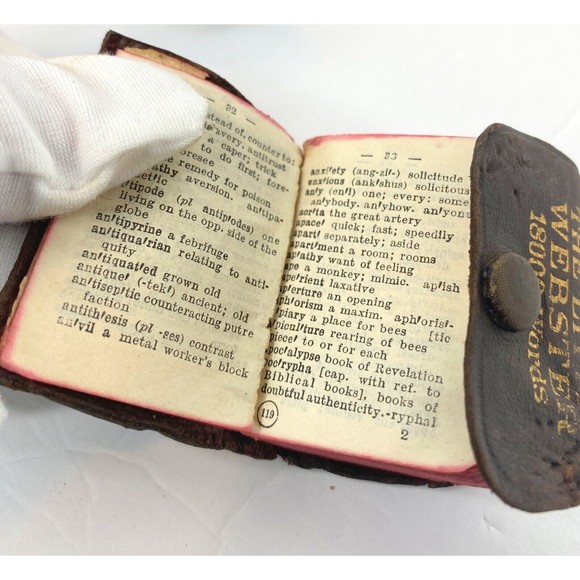 — 32 —
instead of, counter to:
slavery, antitrust
a caper; trick
to do first; fore-
foresee
remedy for poison
athy aversion. antipa-
thetic
antipode (pl antip'odes) one
living on the opp. side of the
globe
an'tipyrine a febrifuge
an'tiqua'rian relating to anti-
quity
an'tiquat'ed grown old
antique' (-tek') ancient; old
an'tisep'tic counteracting putre
faction
antith'esis (pl -ses) contrast
an'vil a metal worker's block
— 33 —
anxi'ety (ang-zi'-) solicitude
anx'ious (ank'shus) solicitous
an'y (en'i) one; every: some
an'ybody. an'yhow. an'yone
aor'ta the great artery
apace' quick; fast; speedily
apart' separately; aside
apart'ment a room; rooms
ap'athy want of feeling
ape a monkey; mimic. ap'ish
ape'rient laxative
ap'erture an opening
aph'orism a maxim. aph'oris'-
apiary a place for bees [tic
apiculture rearing of bees
apiece' to or for each
apoc'alypse book of Revelation
apoc'rypha [cap. with ref. to
Biblical books], books of
doubtful authenticity.-ryphal
119
2
WEBSTER
18000 Words